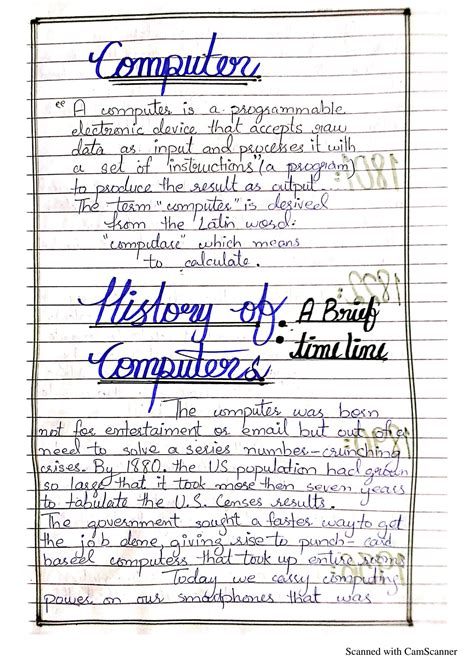 Computer
“ A computer is a programmable
electronic device that accepts raw
data as input and processes it with
a set of "instructions" (a program)
to produce the result as output.
The term "computer" is derived
from the Latin word:
"computare" which means
to calculate.
History of : A Brief
Computers timeline
The computer was born
not for entertaiment or email but out of a
need to solve a series number-crunching
crises. By 1880. the US population had grown
so large that it took more then seven years
to tabulate the U.S. Censes results.
The government sought a faster way to get
the job done, giving rise to punch-card
based computers that took up entire room
Today we carry computing
power on our smartphones that was
1801:
1822:
Scanned with CamScanner